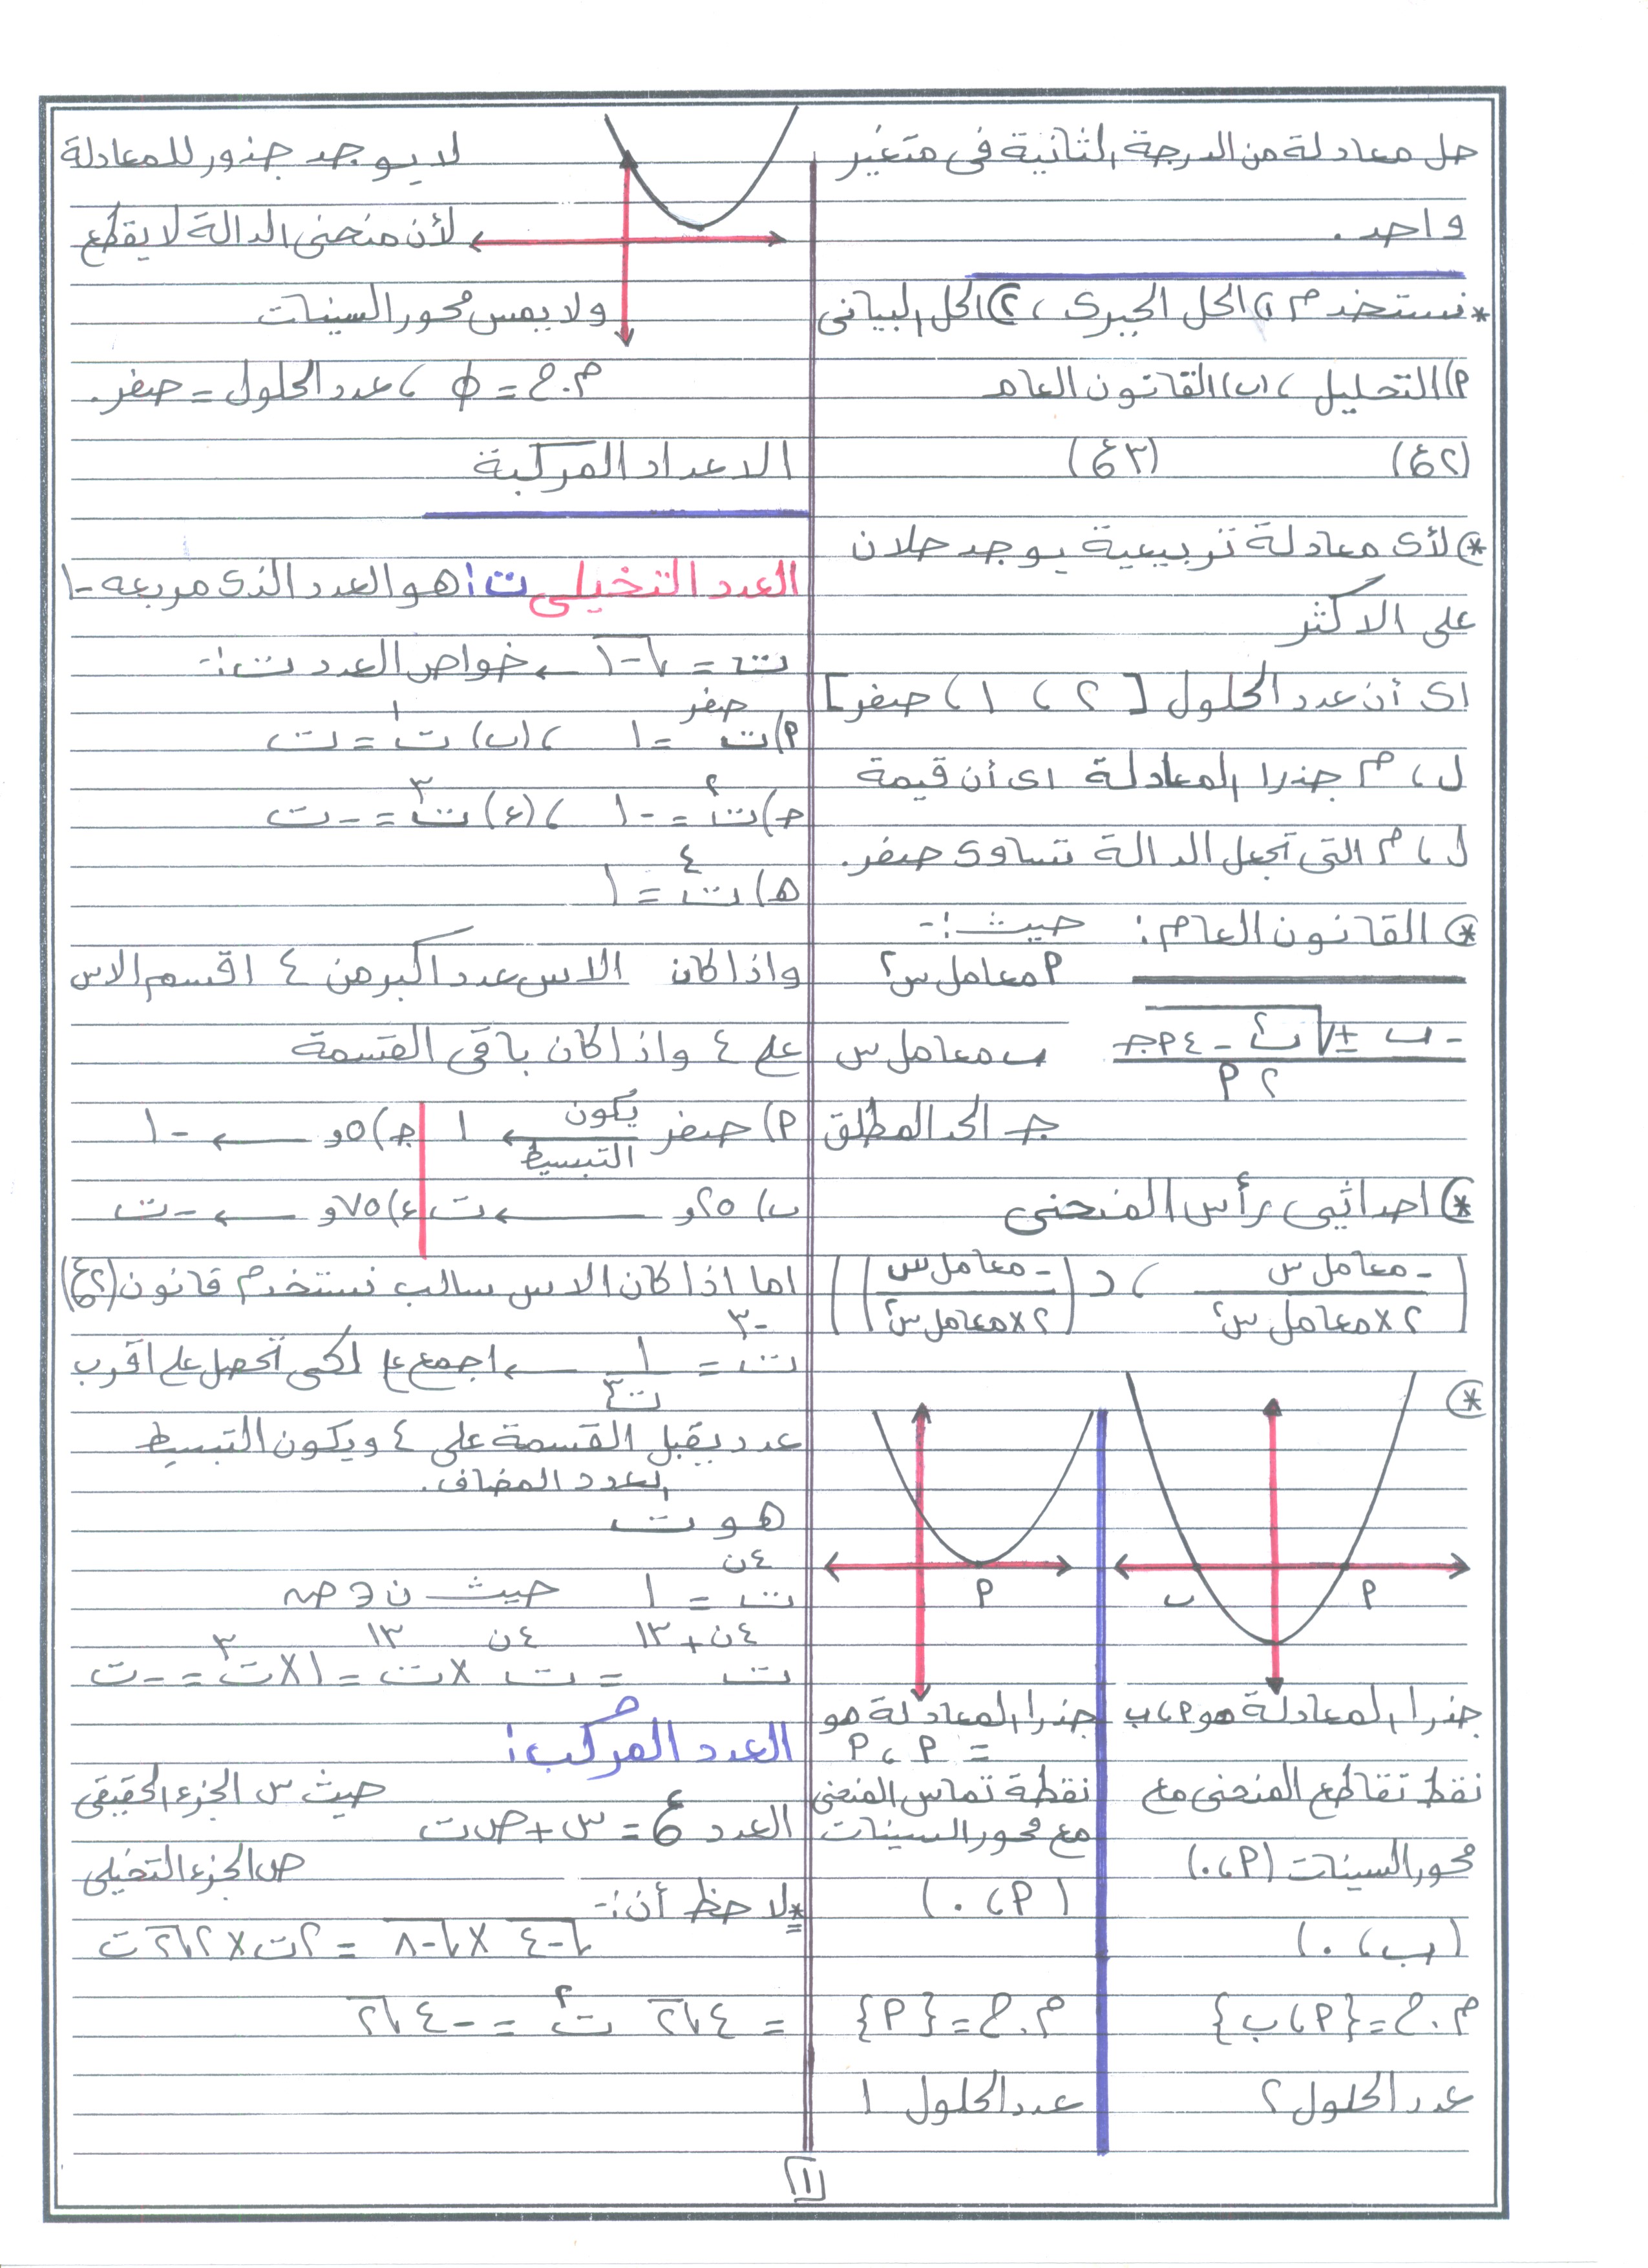 حل معادلة من الدرجة الثانية فى متغير
واحد .
* نستخدم ١) الحل الجبرى ، ٢) الحل البيانى
٩) التحليل ، ب) القانون العام
(٢ع) (٣ع)
* لأى معادلة تربيعية يوجد حلان
على الاكثر
اى أن عدد الحلول [ ٢ ، ١ ، صفر ]
ل ، م جذرا المعادلة اى أن قيمة
ل ، م التى تجعل الدالة تساوى صفر .
* القانون العام : حيث :-
٩ معامل س٢
(- ب ± √(ب٢ - ٤ ٩ جـ)) / ٢ ٩
ب معامل س
جـ الحد المطلق
* احداثيى رأس المنحنى
( - معامل س / ٢ × معامل س٢ ، د ( - معامل س / ٢ × معامل س٢ ) )
*
ب ٩
جذرا المعادلة هو ٩ ، ب
نقط تقاطع المنحنى مع
محور السينات (٩ ، ٠)
(ب ، ٠)
م . ح = {٩ ، ب}
عدد الحلول ٢
٩
جذرا المعادلة هو
= ٩ ، ٩
نقطة تماس المنحنى
مع محور السينات
(٩ ، ٠)
م . ح = {٩}
عدد الحلول ١
لا يوجد جذور للمعادلة
لأن منحنى الدالة لا يقطع
ولا يمس محور السينات
م . ح = φ ، عدد الحلول = صفر .
الاعداد المركبة
العدد التخيلى ت : هو العدد الذى مربعه -١
ت = √-١ ← خواص العدد ت :-
٩) ت^صفر = ١ ، (ب) ت^١ = ت
جـ) ت^٢ = -١ ، (ء) ت^٣ = -ت
هـ) ت^٤ = ١
واذا كان الاس عدد اكبر من ٤ اقسم الاس
على ٤ واذا كان باقى القسمة
٩) صفر يكون التبسيط ← ١ جـ) ٥و ← -١
ب) ٢٥و ← ت ء) ٧٥و ← -ت
اما اذا كان الاس سالب نستخدم قانون (٢ع)
ت^-٣ = ١ / ت^٣ ← اجمع ع لكى تحصل على اقرب
عدد يقبل القسمة على ٤ ويكون التبسيط
هو ت العدد المضاف .
ت^٤ن = ١ حيث ن ∈ ص
ت^(٤ن+١٣) = ت^٤ن × ت^١٣ = ١ × ت^٣ = -ت
العدد المركب :
العدد ع = س + ص ت
حيث س الجزء الحقيقى
ص الجزء التخيلى
* لاحظ أن :-
√-٤ × √-٨ = ٢ت × ٢√٢ ت
= ٤√٢ ت^٢ = -٤√٢
١